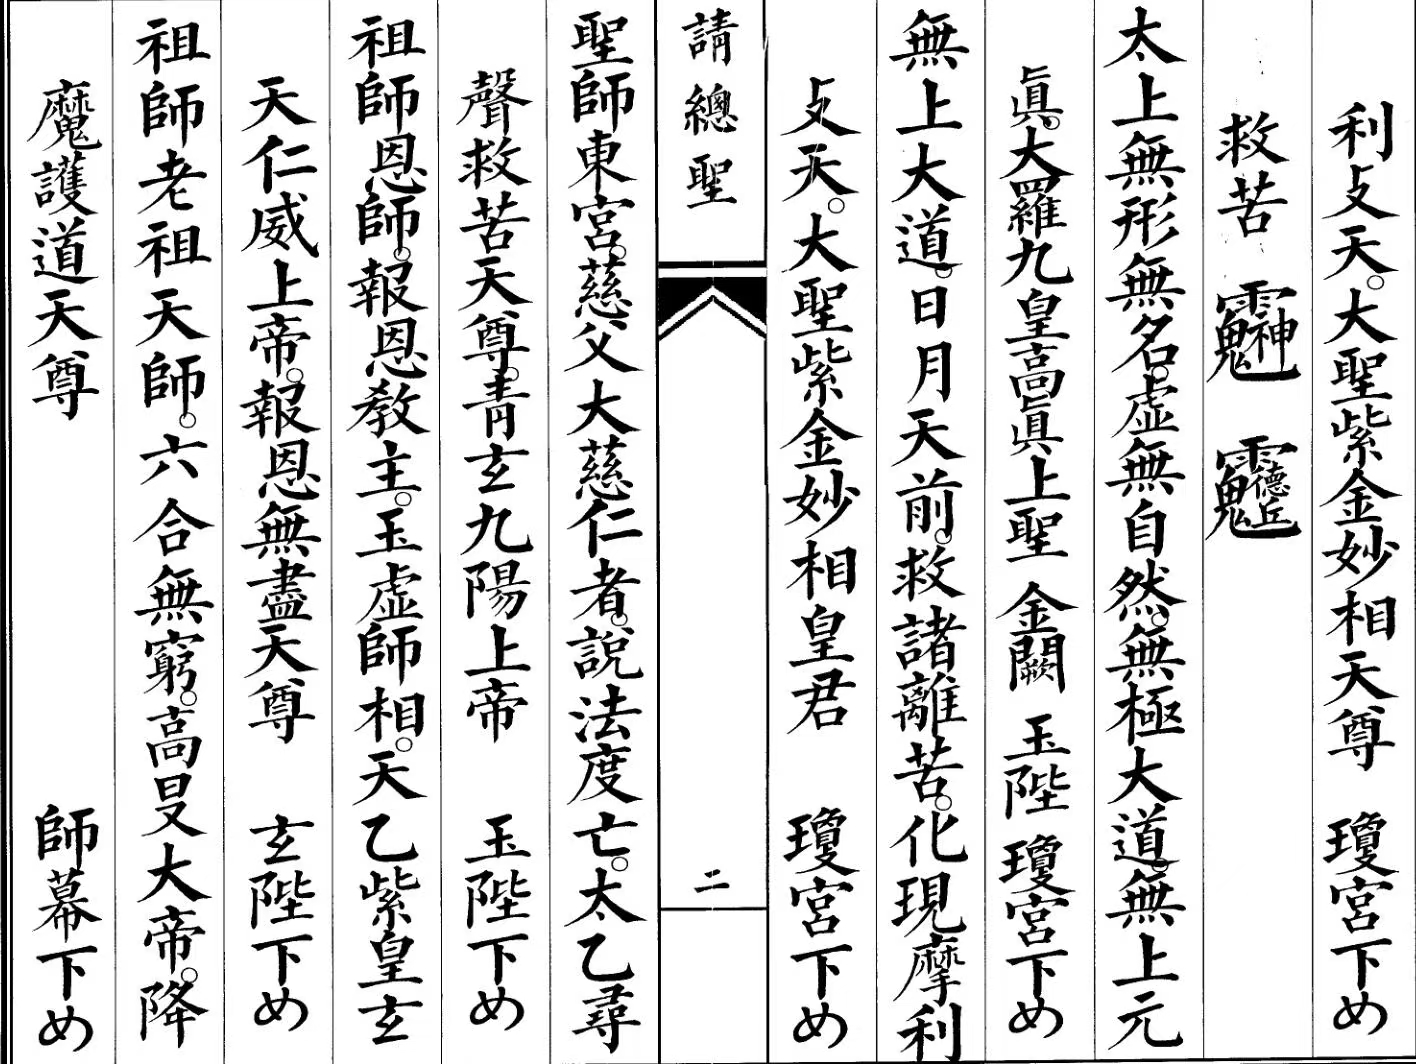 利支天。大聖紫金妙相天尊　瓊宮下め
救苦
太上無形無名。虛無自然。無極大道。無上元
眞。大羅九皇高眞上聖　金闕　玉陛　瓊宮下め
無上大道。日月天前。救諸離苦。化現摩利
支天。大聖紫金妙相皇君　瓊宮下め
請總聖　二
聖師東宮。慈父大慈仁者。說法度亡。太乙尋
聲救苦天尊。青玄九陽上帝　玉陛下め
祖師恩師。報恩教主。玉虛師相。天乙紫皇玄
天仁威上帝。報恩無盡天尊　玄陛下め
祖師老祖天師。六合無窮。高大帝。降
魔護道天尊　師幕下め